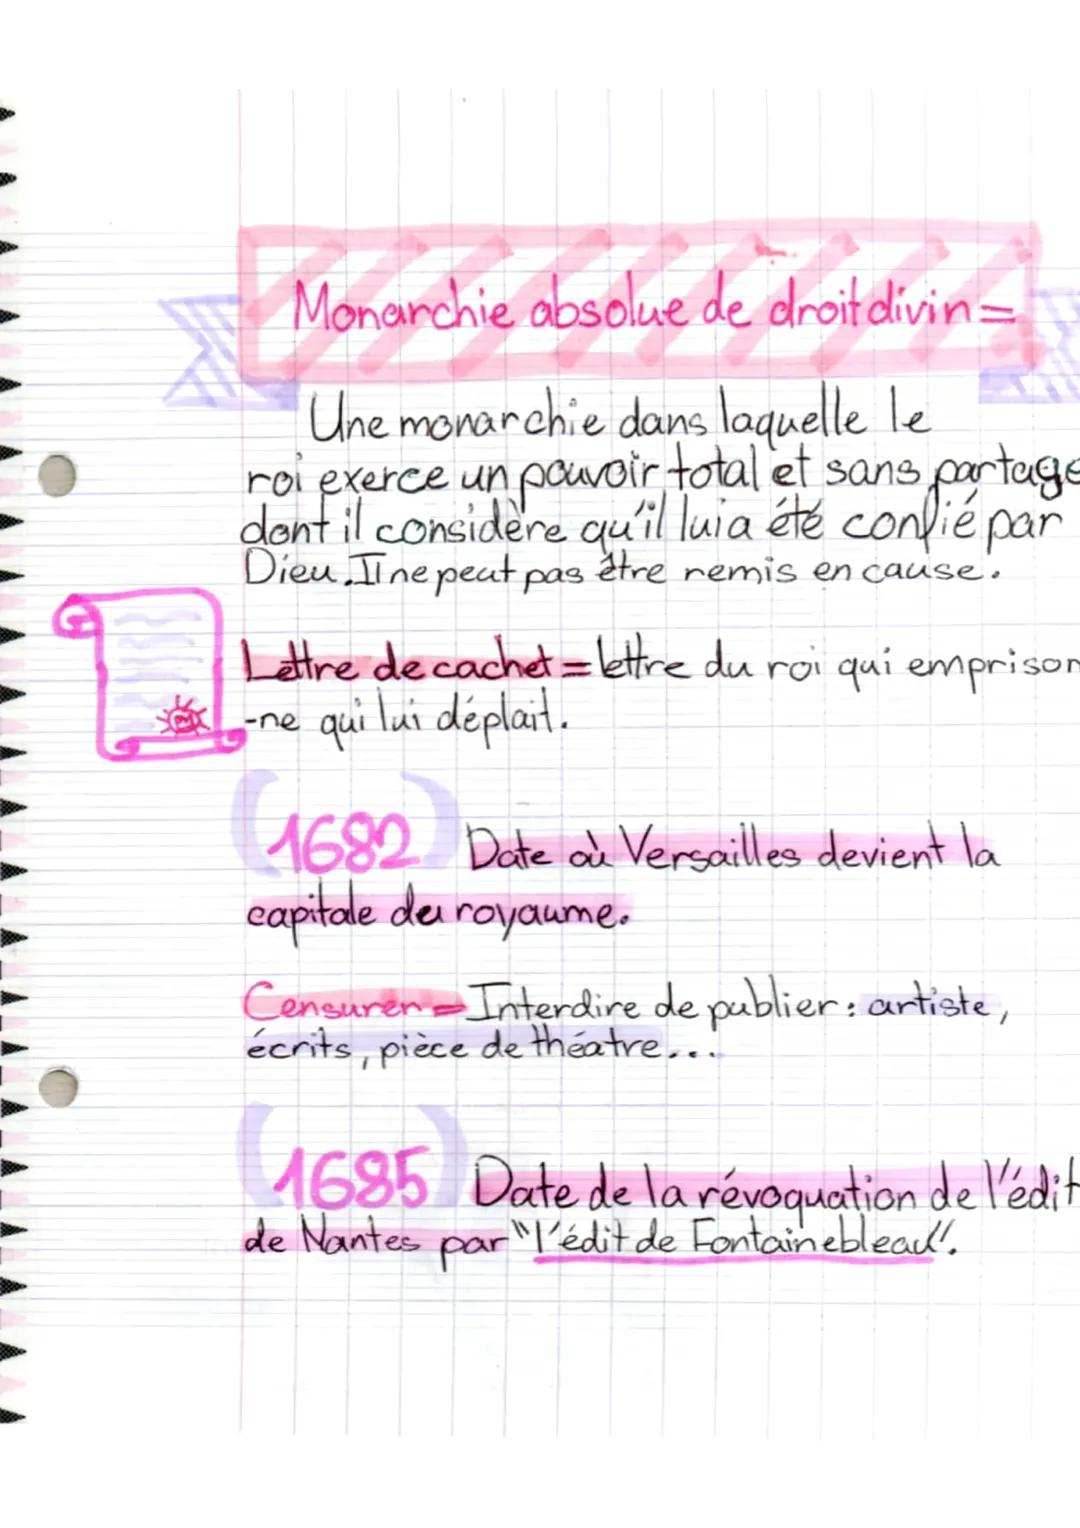 Monarchie absolue de droit divin =
Une monarchie dans laquelle le
roi exerce un pouvoir total et sans partage
dont il considère qu'il lui a été confié par
Dieu. Il ne peut pas être remis en cause.
Lettre de cachet = lettre du roi qui emprison
-ne qui lui déplait.
(1682) Date où Versailles devient la
capitale du royaume.
Censurer = Interdire de publier : artiste,
écrits, pièce de théatre...
(1685) Date de la révoquation de l'édit
de Nantes par "l'édit de Fontainebleau".